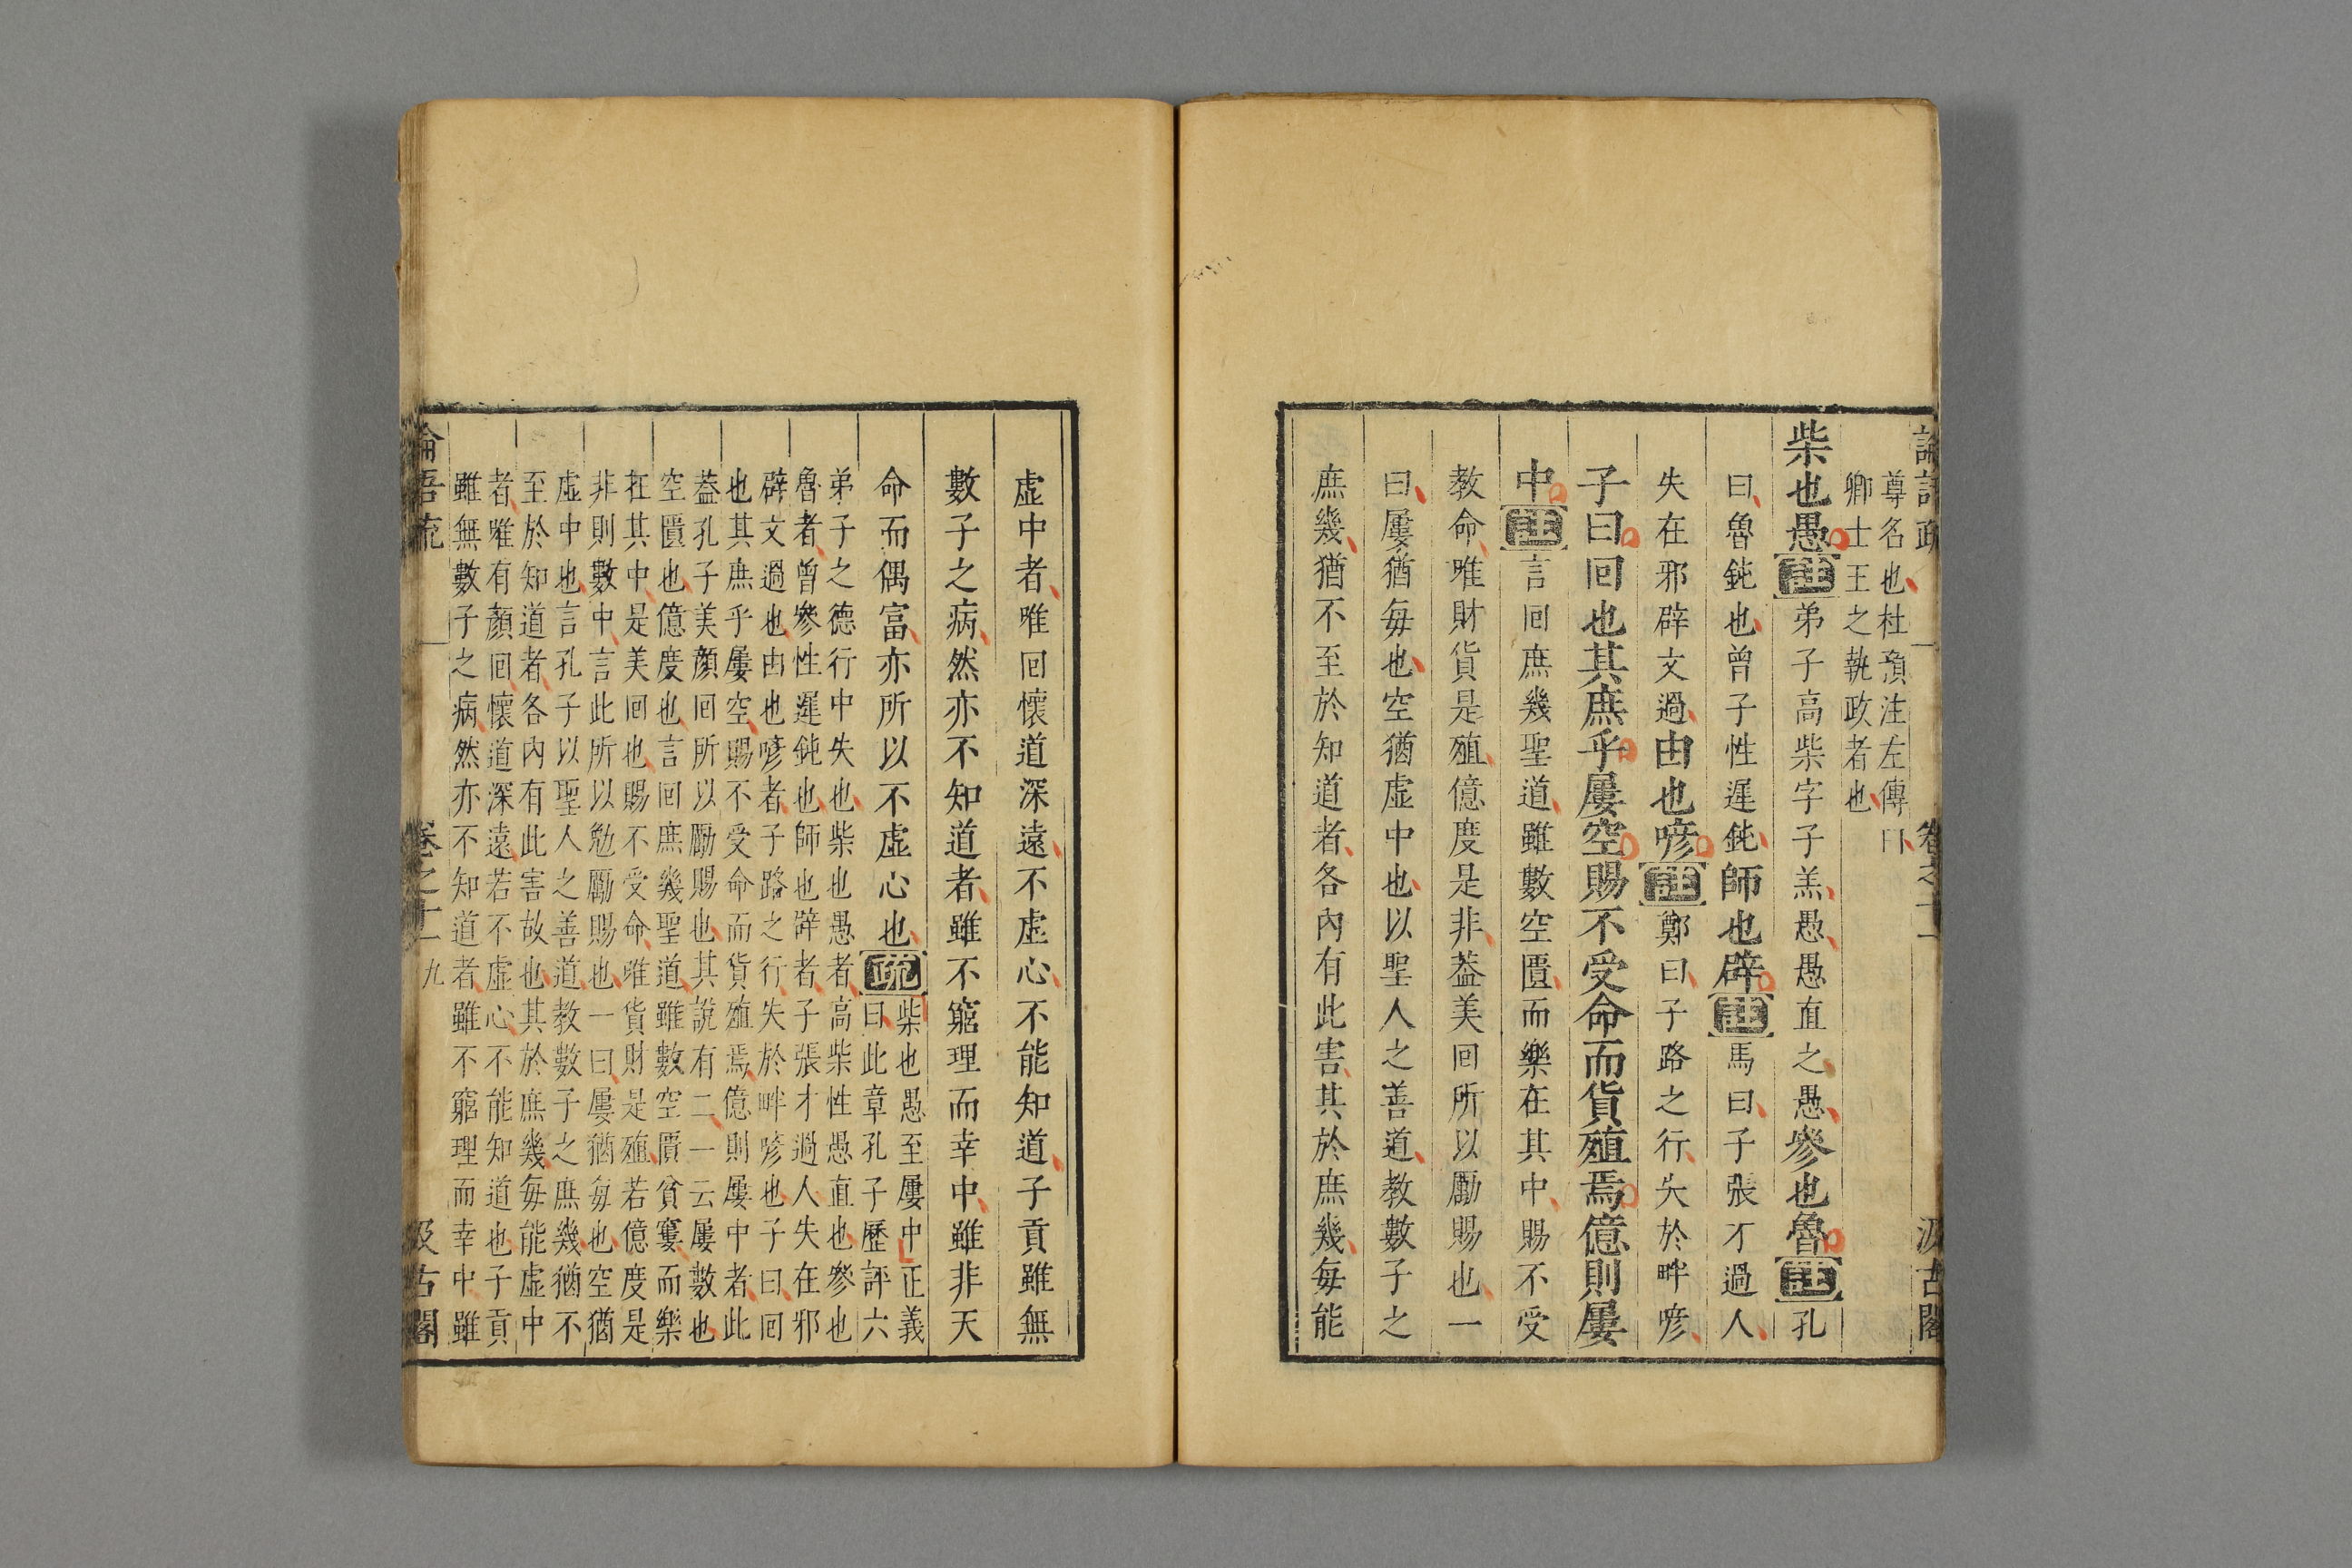 論語疏 卷之十一 汲古閣
尊名也杜預注左傳曰
卿士王之執政者也
柴也愚註弟子高柴字子羔愚愚直之愚參也魯註孔
曰魯鈍也曾子性遲鈍師也辟註馬曰子張才過人
失在邪辟文過由也喭註鄭曰子路之行失於畔喭
子曰回也其庶乎屢空賜不受命而貨殖焉億則屢
中註言回庶幾聖道雖數空匱而樂在其中賜不受
教命唯財貨是殖億度是非葢美回所以勵賜也一
曰屢猶每也空猶虛中也以聖人之善道教數子之
庶幾猶不至於知道者各內有此害其於庶幾每能
虛中者唯回懷道深遠不虛心不能知道子貢雖無
數子之病然亦不知道者雖不窮理而幸中雖非天
命而偶富亦所以不虛心也疏
柴也愚至屢中正義
曰此章孔子歷評六
弟子之德行中失也柴也愚者高柴性愚直也參也
魯者曾參性遲鈍也師也辟者子張才過人失在邪
辟文過也由也喭者子路之行失於畔喭也子曰回
也其庶乎屢空賜不受命而貨殖焉億則屢中者此
葢孔子美顏回所以勵賜也其說有二一云屢數也
空匱也億度也言回庶幾聖道雖數空匱貧窶而樂
在其中是美回也賜不受命唯貨財是殖若億度是
非則數中言此所以勉勵賜也一曰屢猶每也空猶
虛中也言孔子以聖人之善道教數子之庶幾猶不
至於知道者各內有此害故也其於庶幾每能虛中
者唯有顏回懷道深遠若不虛心不能知道也子貢
雖無數子之病然亦不知道者雖不窮理而幸中雖
論語疏 卷之十一 九 汲古閣